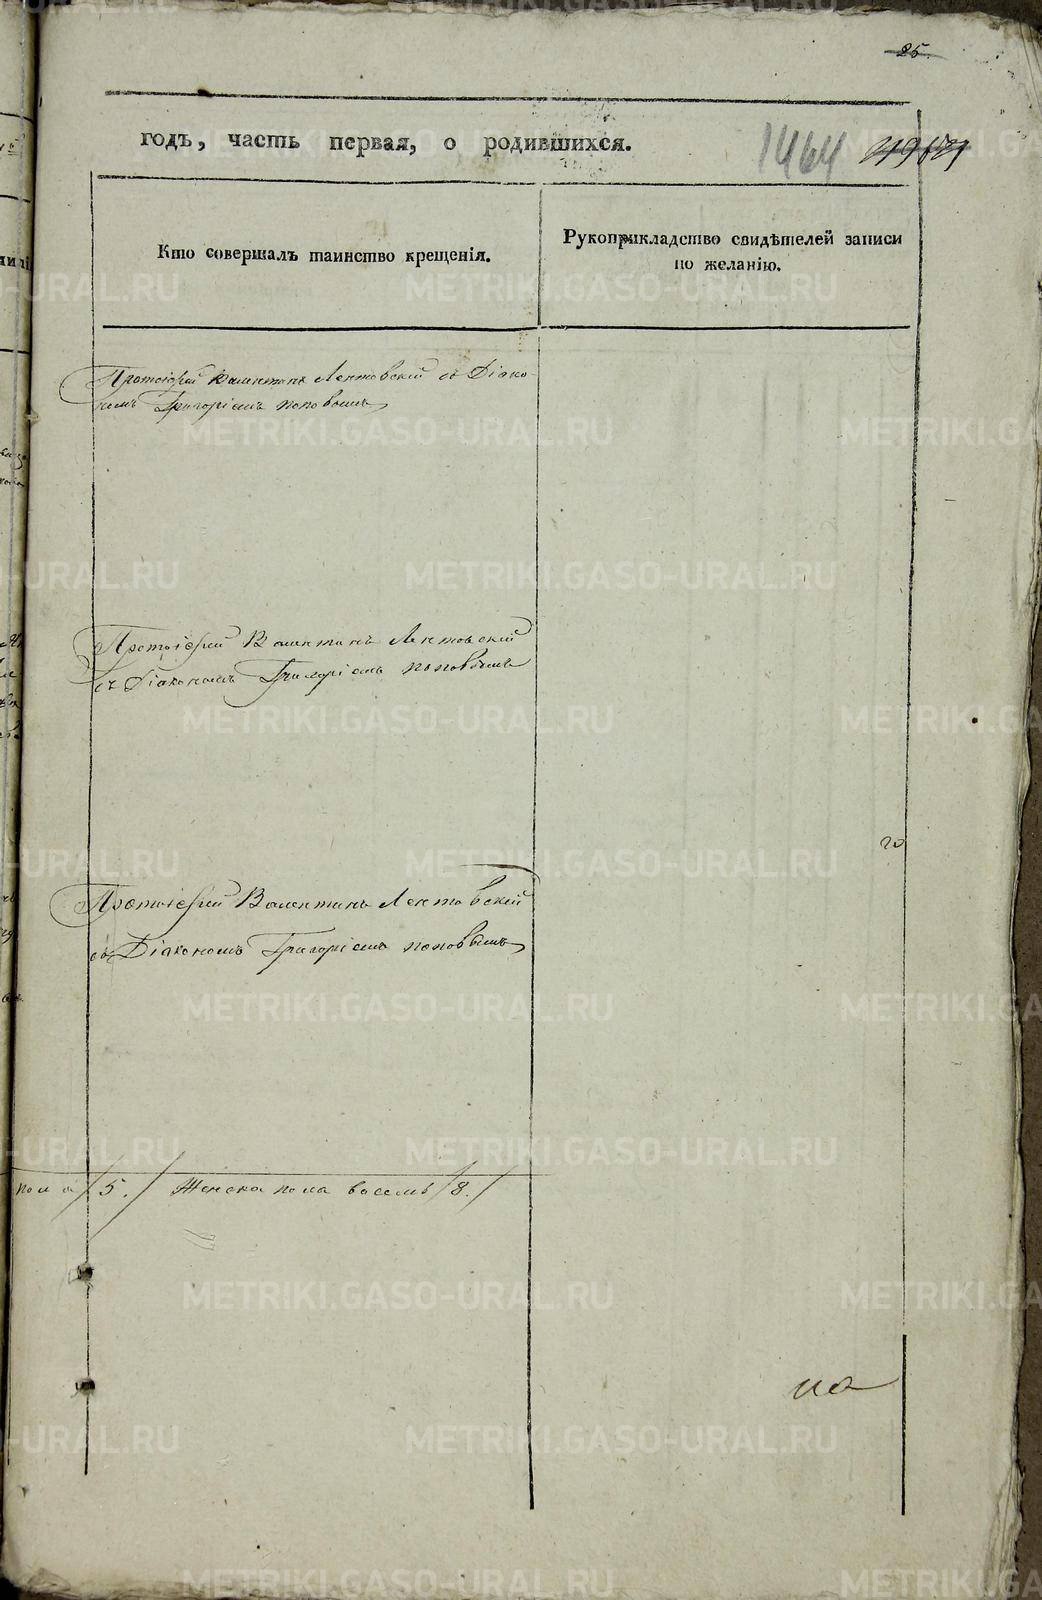 25.
годъ, часть первая, о родившихся.
1464
Кто совершалъ таинство крещенія.
Рукоприкладство свидѣтелей записи
по желанію.
Протоіерей Валентинъ Лентовскій съ Діако-
номъ Григоріемъ Поповымъ
Протоіерей Валентинъ Лентовскій
съ Діакономъ Григоріемъ Поповымъ
Протоіерей Валентинъ Лентовскій
съ Діакономъ Григоріемъ Поповымъ
пола /5./ Женска пола восемь /8./
METRIKI.GASO-URAL.RU